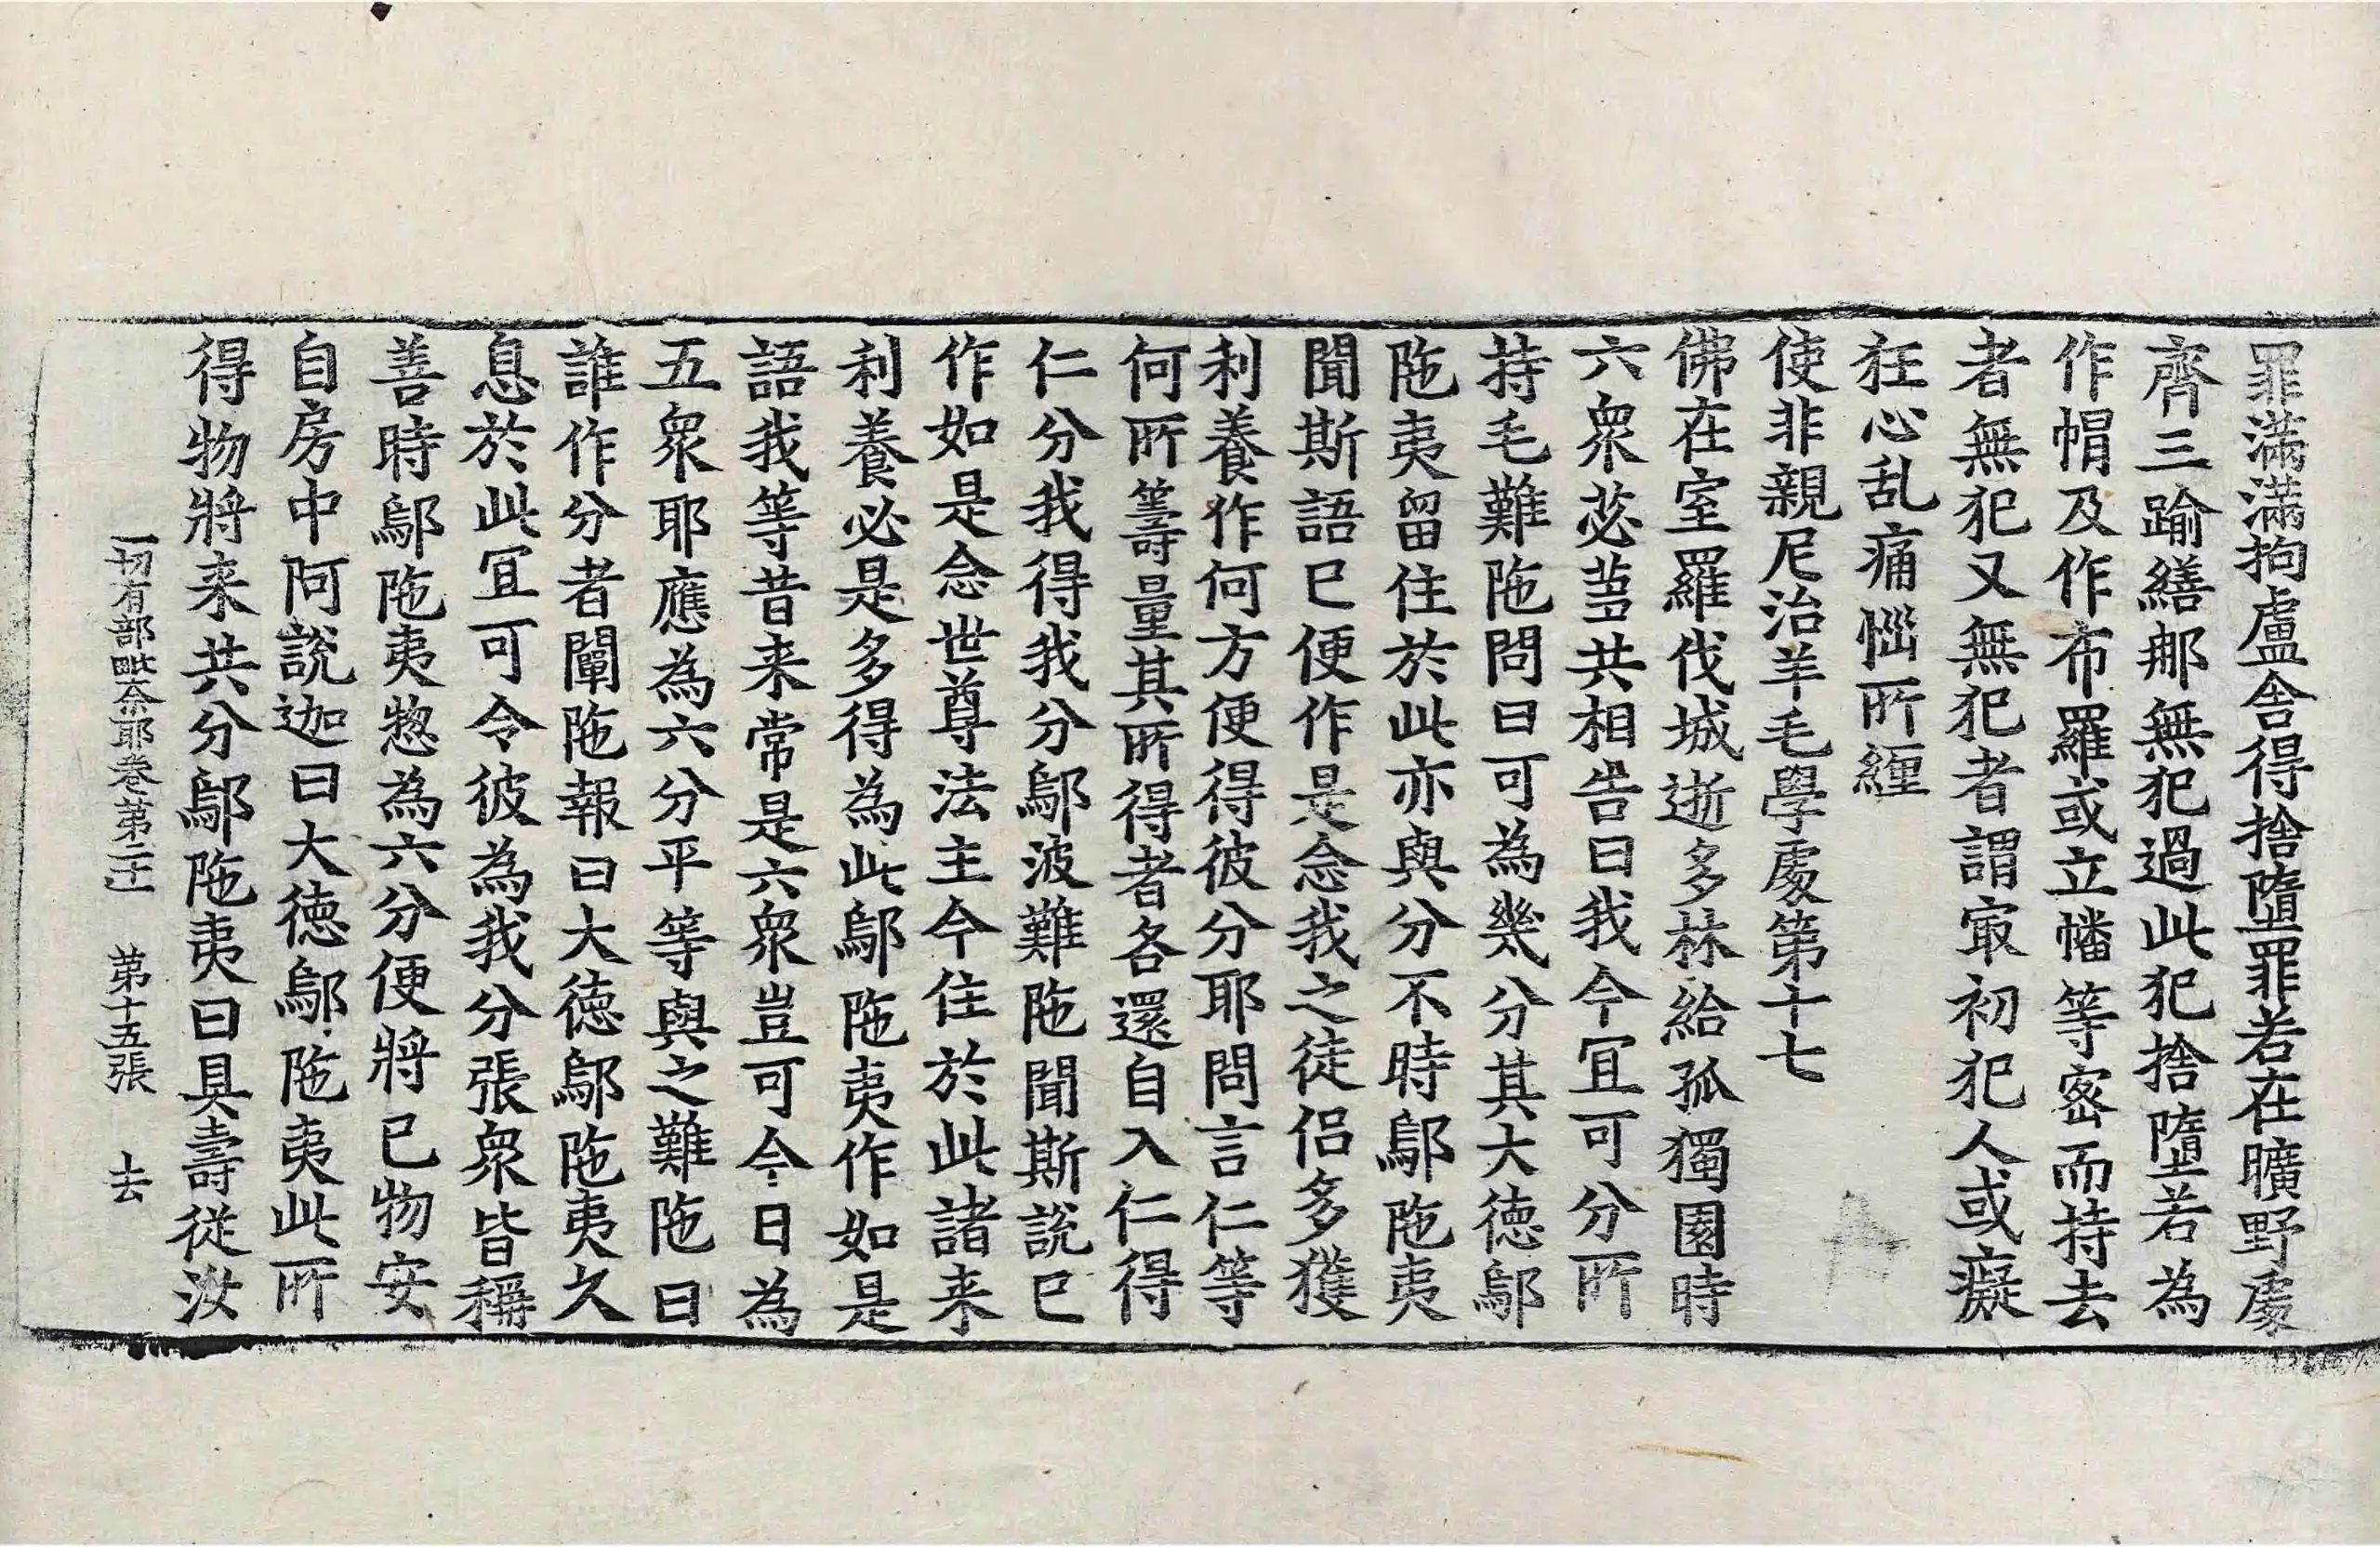 罪滿滿拘盧舍得捨墮罪若在曠野處
齊三踰繕那無犯過此犯捨墮若為
作帽及作布羅或立幡等密而持去
者無犯又無犯者謂㝡初犯人或癡
狂心乱痛惱所纏
使非親尼治羊毛學處第十七
佛在室羅伐城逝多林給孤獨園時
六衆苾蒭共相告曰我今宜可分所
持毛難陁問曰可為幾分其大德鄔
陁夷留住於此亦與分不時鄔陁夷
聞斯語已便作是念我之徒侣多獲
利養作何方便得彼分耶問言仁等
何所籌量其所得者各還自入仁得
仁分我得我分鄔波難陁聞斯說已
作如是念世尊法主今住於此諸来
利養必是多得為此鄔陁夷作如是
語我等昔来常是六衆豈可今日為
五衆耶應為六分平等與之難陁曰
誰作分者闡陁報曰大德鄔陁夷久
息於此宜可令彼為我分張衆皆稱
善時鄔陁夷惣為六分便將已物安
自房中阿說迦曰大德鄔陁夷此所
得物將来共分鄔陁夷曰具壽從汝
一切有部毗奈耶卷第二十一 第十五張 去